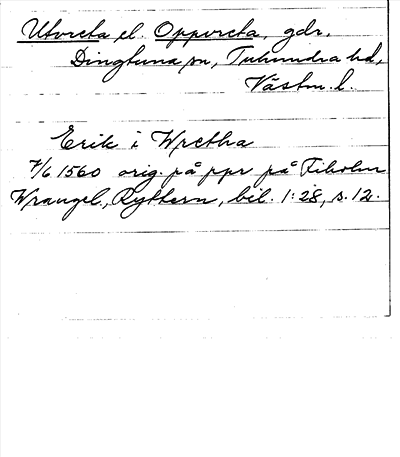 Utvreta el. Oppvreta, gdr,
Dingtuna sn, Tuhundra hd,
Västm. l.
Erik i Wretha
7/6 1560 orig. på ppr på Fiholm
Wrangel, Ryttern, bil. 1:28, s. 12.